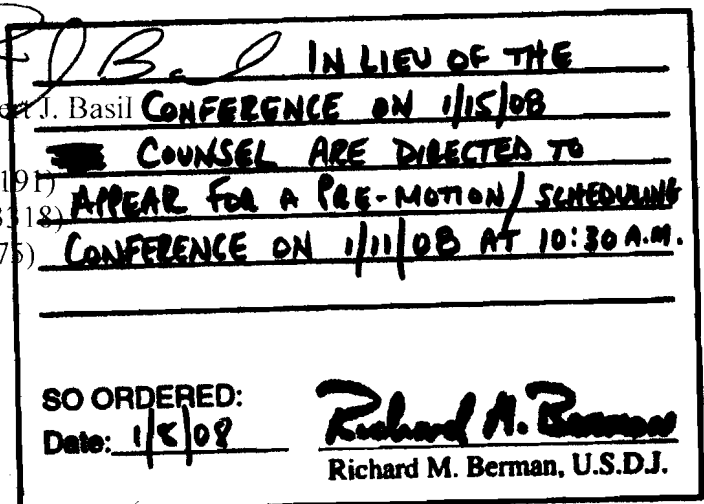 IN LIEU OF THE
J. Basil CONFERENCE ON 1/15/08
COUNSEL ARE DIRECTED TO
191)
APPEAR FOR A PRE-MOTION/SCHEDULING
318)
CONFERENCE ON 1/11/08 AT 10:30 A.M.
75)
SO ORDERED:
Date: 1/8/08
Richard M. Berman
Richard M. Berman, U.S.D.J.